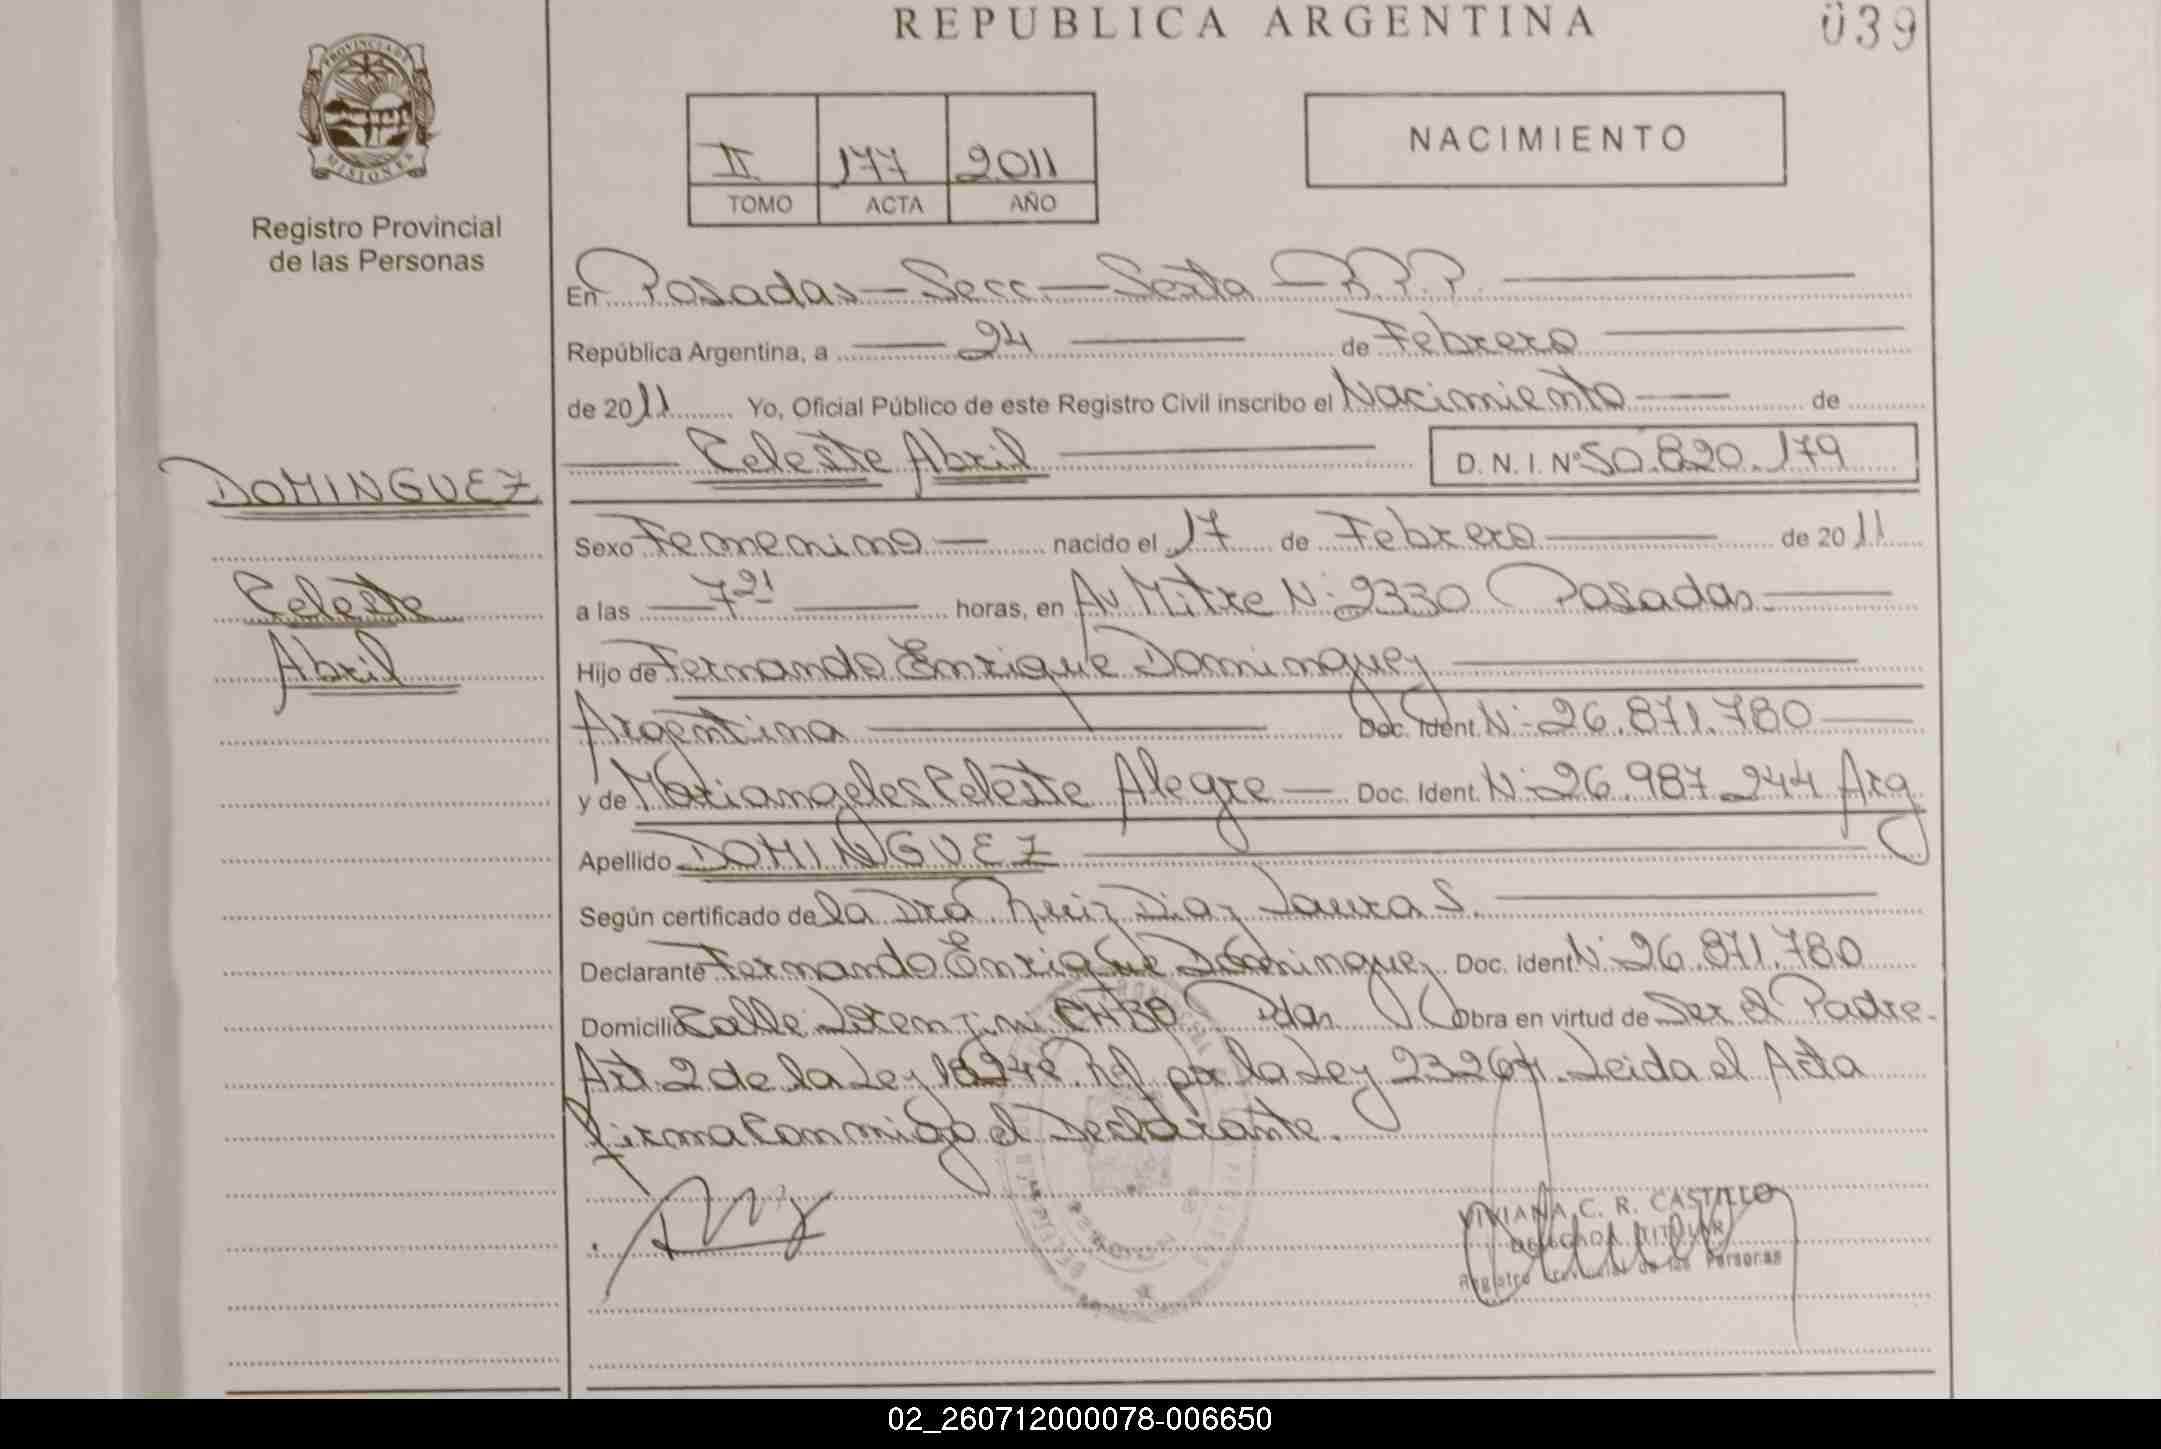 REPUBLICA ARGENTINA
039
PROVINCIA DE
MISIONES
Registro Provincial
de las Personas
II 177 2011
TOMO ACTA AÑO
NACIMIENTO
En Posadas - Secc - Sexta - R.P.P.
República Argentina, a 24 de Febrero
de 2011 Yo, Oficial Público de este Registro Civil inscribo el Nacimiento de
Celeste Abril D.N.I. Nº 50.820.179
DOMINGUEZ
Celeste
Abril
Sexo Femenino nacido el 17 de Febrero de 2011
a las 7 21 horas, en Av Mitre Nº 2330 Posadas
Hijo de Fernando Enrique Dominguez
Argentina Doc. Ident. Nº 26.871.780
y de Mariangeles Celeste Alegre Doc. Ident. Nº 26.987.244 Arg
Apellido DOMINGUEZ
Según certificado de la Dra Ruiz Diaz Laura S.
Declarante Fernando Enrique Dominguez Doc. Ident. Nº 26.871.780
Domicilio Calle Pdas Obra en virtud de Ser el Padre.
Art. 2 de la Ley 18248 Rf. por la Ley 23264. Leida el Acta
firma conmigo el Declarante.
VIVIANA C. R. CASTILLO
DELEGADA TITULAR
Registro Provincial de las Personas
02_260712000078-006650